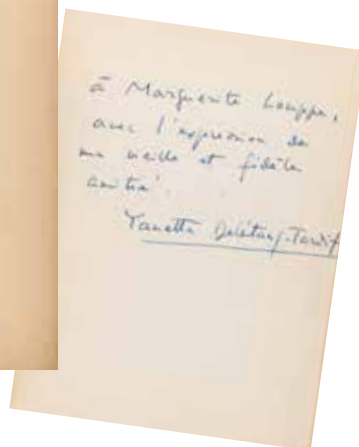 à Marguerite Louppe,
avec l'expression de
ma vieille et fidèle
amitié.
Yanette Delétang-Tardif